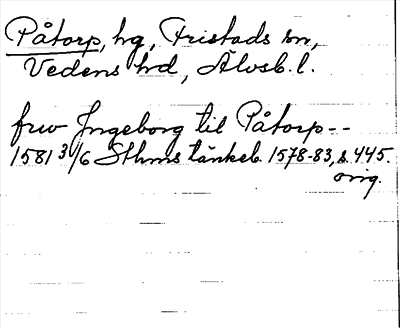 Påtorp, hg, Fristads sn,
Vedens hd, Älvsb. l.
fru Ingeborg til Påtorp--
1581 3/6 Sthms tänkeb. 1578-83, s. 445.
orig.